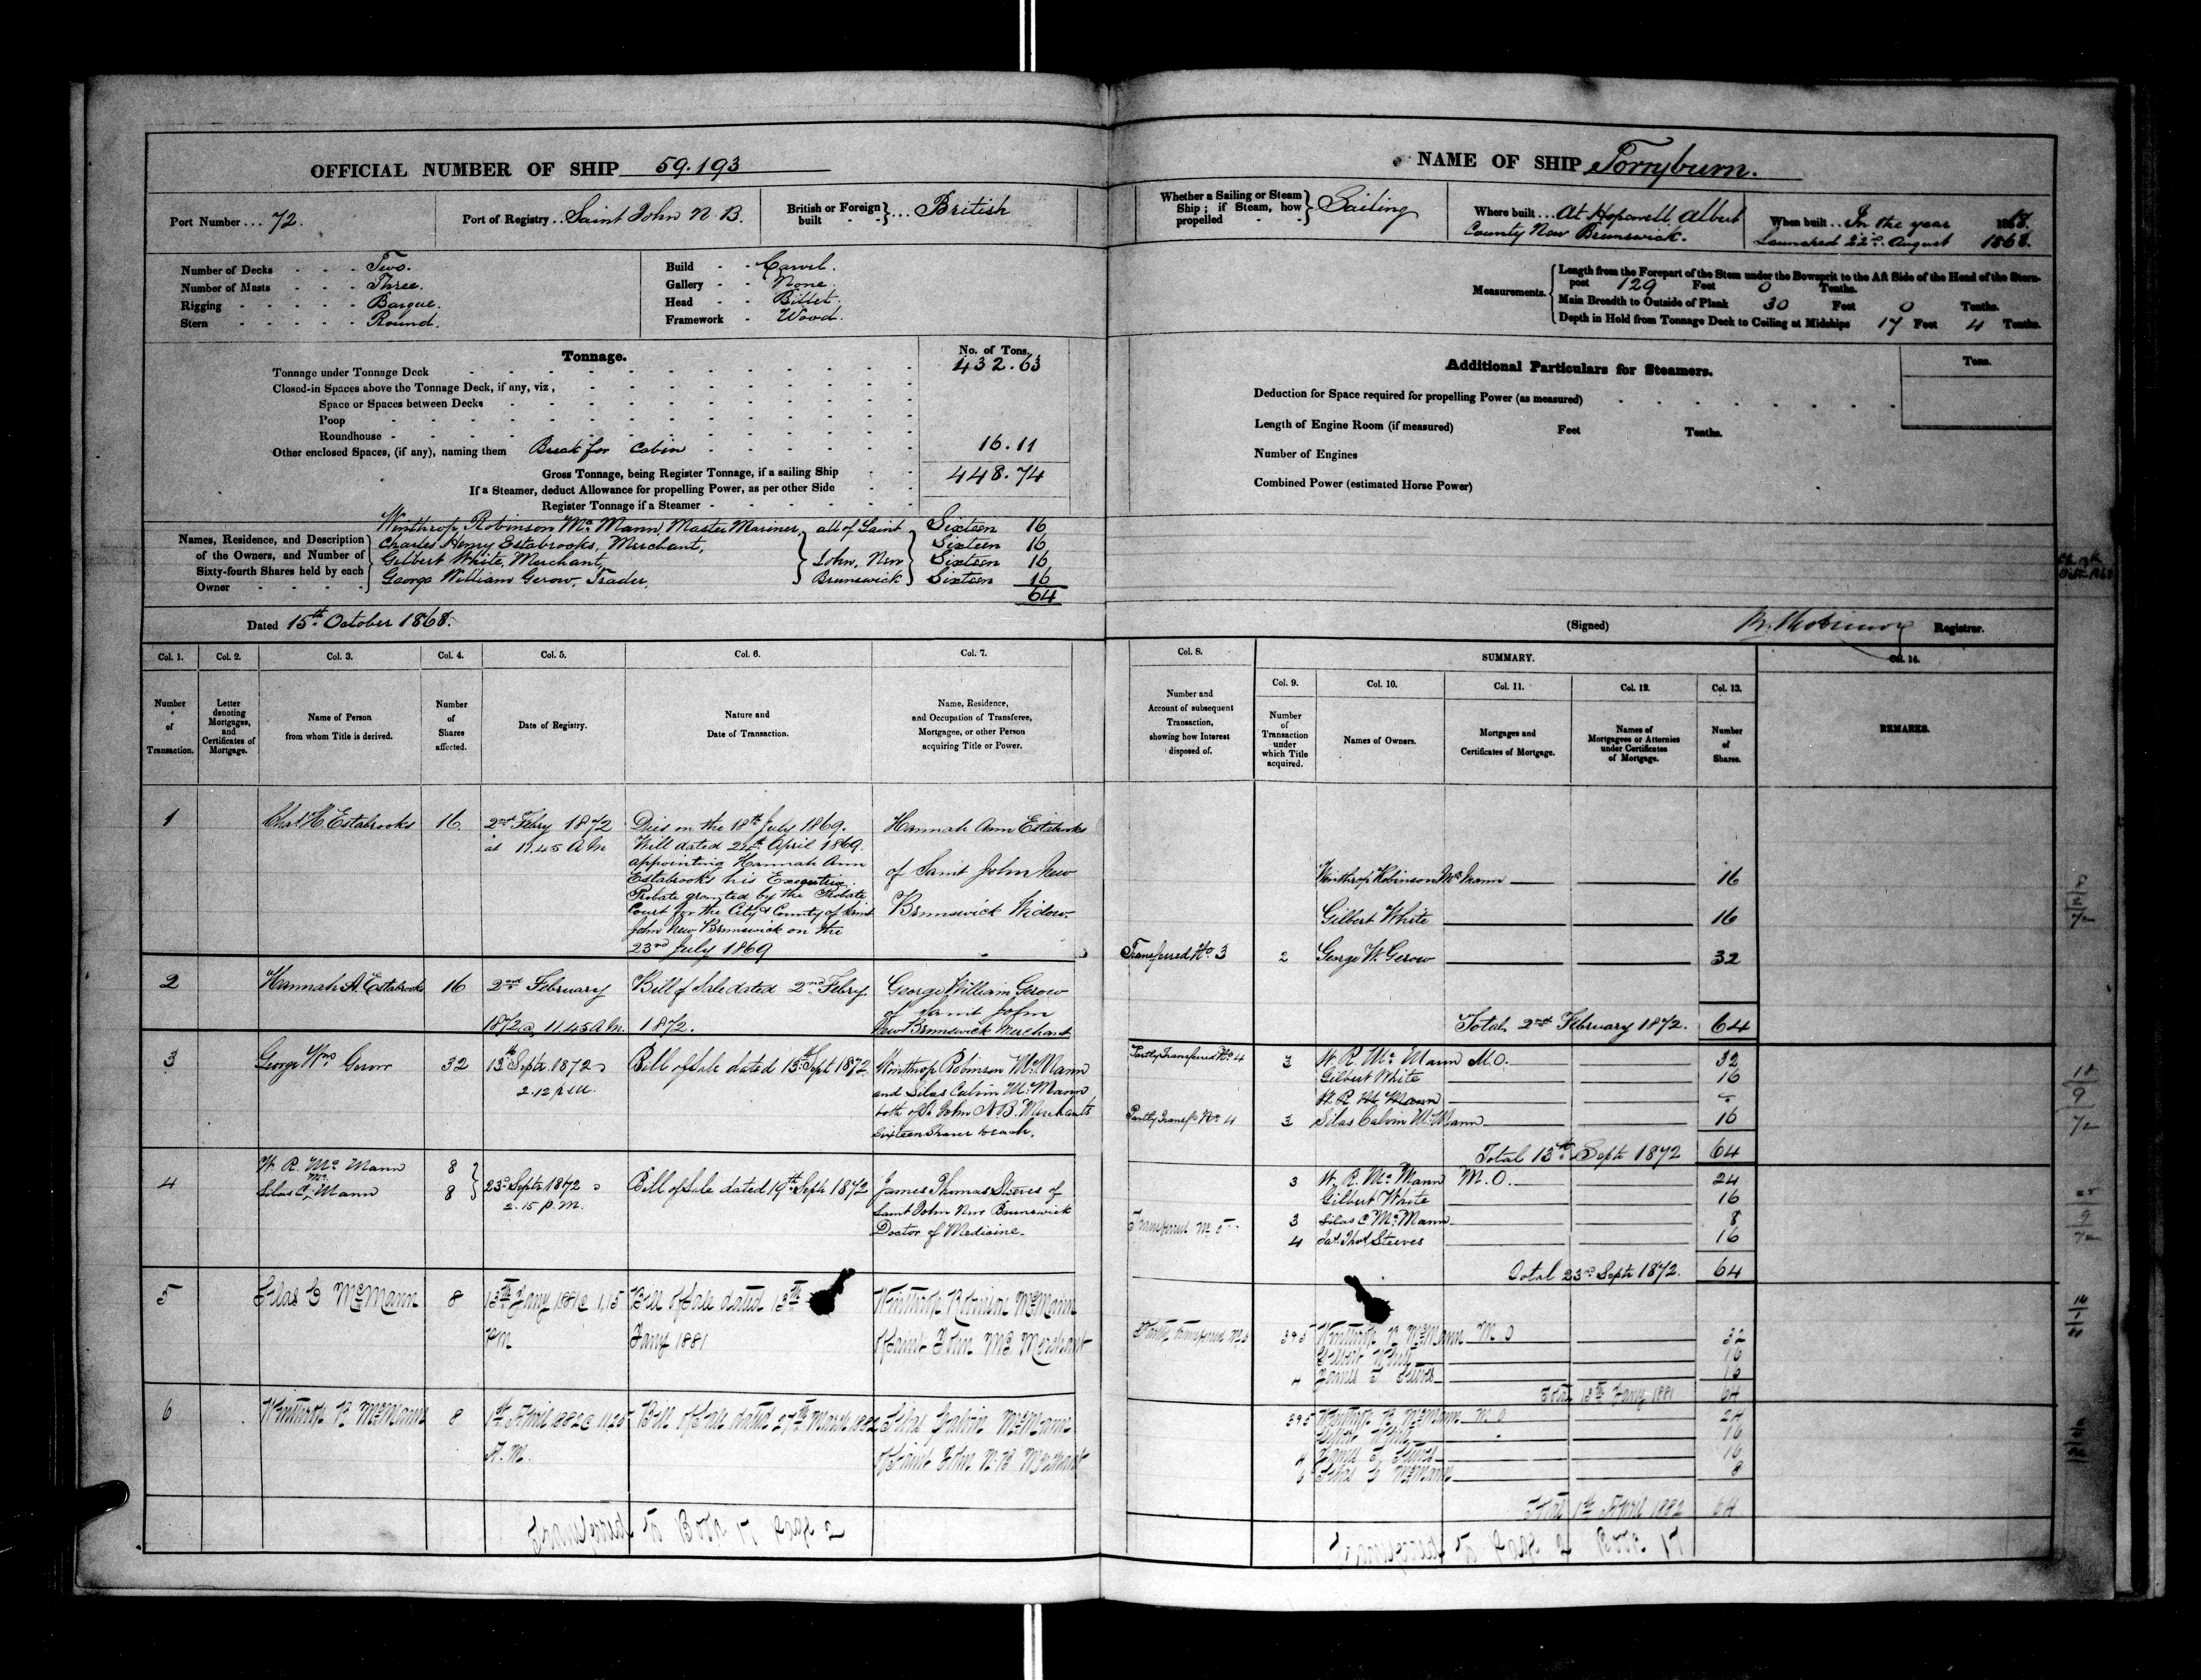 OFFICIAL NUMBER OF SHIP 59.193
Port Number ... 72.
Port of Registry .. Saint John N. B.
British or Foreign built - - } ... British
Number of Decks - - - Two.
Number of Masts - - - Three.
Rigging - - - - - Barque.
Stern - - - - - Round.
Build - - Carvel.
Gallery - - None,
Head - - Billet.
Framework - Wood.
Tonnage.
No. of Tons.
Tonnage under Tonnage Deck 432.63
Closed-in Spaces above the Tonnage Deck, if any, viz,
Space or Spaces between Decks
Poop
Roundhouse
Other enclosed Spaces, (if any), naming them Break for Cabin 16.11
Gross Tonnage, being Register Tonnage, if a sailing Ship 448.74
If a Steamer, deduct Allowance for propelling Power, as per other Side
Register Tonnage if a Steamer
Names, Residence, and Description of the Owners, and Number of Sixty-fourth Shares held by each Owner
Winthrop Robinson McMann, Master Mariner, all of Saint Sixteen 16
Charles Henry Estabrooks, Merchant, Sixteen 16
Gilbert White, Merchant, John, New Sixteen 16
George William Gerow, Trader, Brunswick Sixteen 16
64
Dated 15th October 1868.
NAME OF SHIP Torryburn.
Whether a Sailing or Steam Ship; if Steam, how propelled - - } Sailing
Where built ... At Hopewell Albert
County New Brunswick.
When built .. In the year
Launched 22nd August 1868.
Measurements.
Length from the Forepart of the Stem under the Bowsprit to the Aft Side of the Head of the Stern-
post 129 Feet 0 Tenths.
Main Breadth to Outside of Plank 30 Feet 0 Tenths.
Depth in Hold from Tonnage Deck to Ceiling at Midships 17 Feet 4 Tenths.
Additional Particulars for Steamers.
Tons.
Deduction for Space required for propelling Power (as measured)
Length of Engine Room (if measured) Feet Tenths.
Number of Engines
Combined Power (estimated Horse Power)
(Signed) Registrar.
Col. 1. Col. 2. Col. 3. Col. 4. Col. 5. Col. 6. Col. 7.
Number of Transaction.
Letter denoting Mortgages, and Certificates of Mortgage.
Name of Person from whom Title is derived.
Number of Shares affected.
Date of Registry.
Nature and Date of Transaction.
Name, Residence, and Occupation of Transferee, Mortgagee, or other Person acquiring Title or Power.
Col. 8. SUMMARY. Col. 14.
Col. 9. Col. 10. Col. 11. Col. 12. Col. 13.
Number and Account of subsequent Transaction, showing how Interest disposed of.
Number of Transaction under which Title acquired.
Names of Owners.
Mortgages and Certificates of Mortgage.
Names of Mortgagees or Attornies under Certificates of Mortgage.
Number of Shares.
REMARKS.
1 Chas. H. Estabrooks 16 2nd Febry 1872
at 11.45 A M
Died on the 18th July 1869.
Will dated 24th April 1869.
appointing Hannah Ann
Estabrooks his Executrix.
Probate granted by the Probate
Court for the City & County of Saint
John New Brunswick on the
23rd July 1869
Hannah Ann Estabrooks
of Saint John New
Brunswick Widow
Winthrop Robinson McMann 16
Gilbert White 16
Transferred No. 3 2 George W. Gerow 32
Total 2nd February 1872. 64
2 Hannah A. Estabrooks 16 2nd February
1872 @ 11.45 A M.
Bill of Sale dated 2nd Febry
1872.
George William Gerow
of Saint John
New Brunswick Merchant
3 George Wm Gerow 32 13th Septr 1872 @
2.12 p.m.
Bill of Sale dated 13th Sept 1872
Winthrop Robinson McMann
and Silas Calvin McMann
both of St John N B. Merchants
Sixteen Shares to each.
Partly Transferred No. 4 3 W. R. McMann M.O. 32
Gilbert White 16
W. R. McMann
Partly Transfd No. 4 3 Silas Calvin McMann 16
Total 13th Septr 1872 64
4 W. R. McMann 8
Silas C. McMann 8
23rd Septr 1872 @
2.15 p.m.
Bill of Sale dated 19th Septr 1872
James Thomas Steeves of
Saint John New Brunswick
Doctor of Medicine
3 W. R. McMann M.O. 24
Gilbert White 16
Transferred No 5 3 Silas C. McMann 8
4 Jas. Thos Steeves 16
Total 23rd Septr 1872. 64
5 Silas C McMann 8 13th Jany 1881 @ 1,15
PM
Bill of Sale dated 13th
Jany 1881
Winthrop Robinson McMann
of Saint John NB Merchant
Partly Transferred No 6 3&5 Winthrop R McMann M O 32
Gilbert White 16
4 James T Steeves 16
Total 13th Jany 1881 64
6 Winthrop R McMann 8 1st April 1882 @ 11.20
A.M.
Bill of Sale dated 27th March 1882
Silas Calvin McMann
of Saint John N.B Merchant
3&5 Winthrop R McMann M O 24
Gilbert White 16
4 James T Steeves 16
6 Silas C McMann 8
Total 1st April 1882 64
Transferred to Book 17 page 2
Transferred to page 2 Book 17